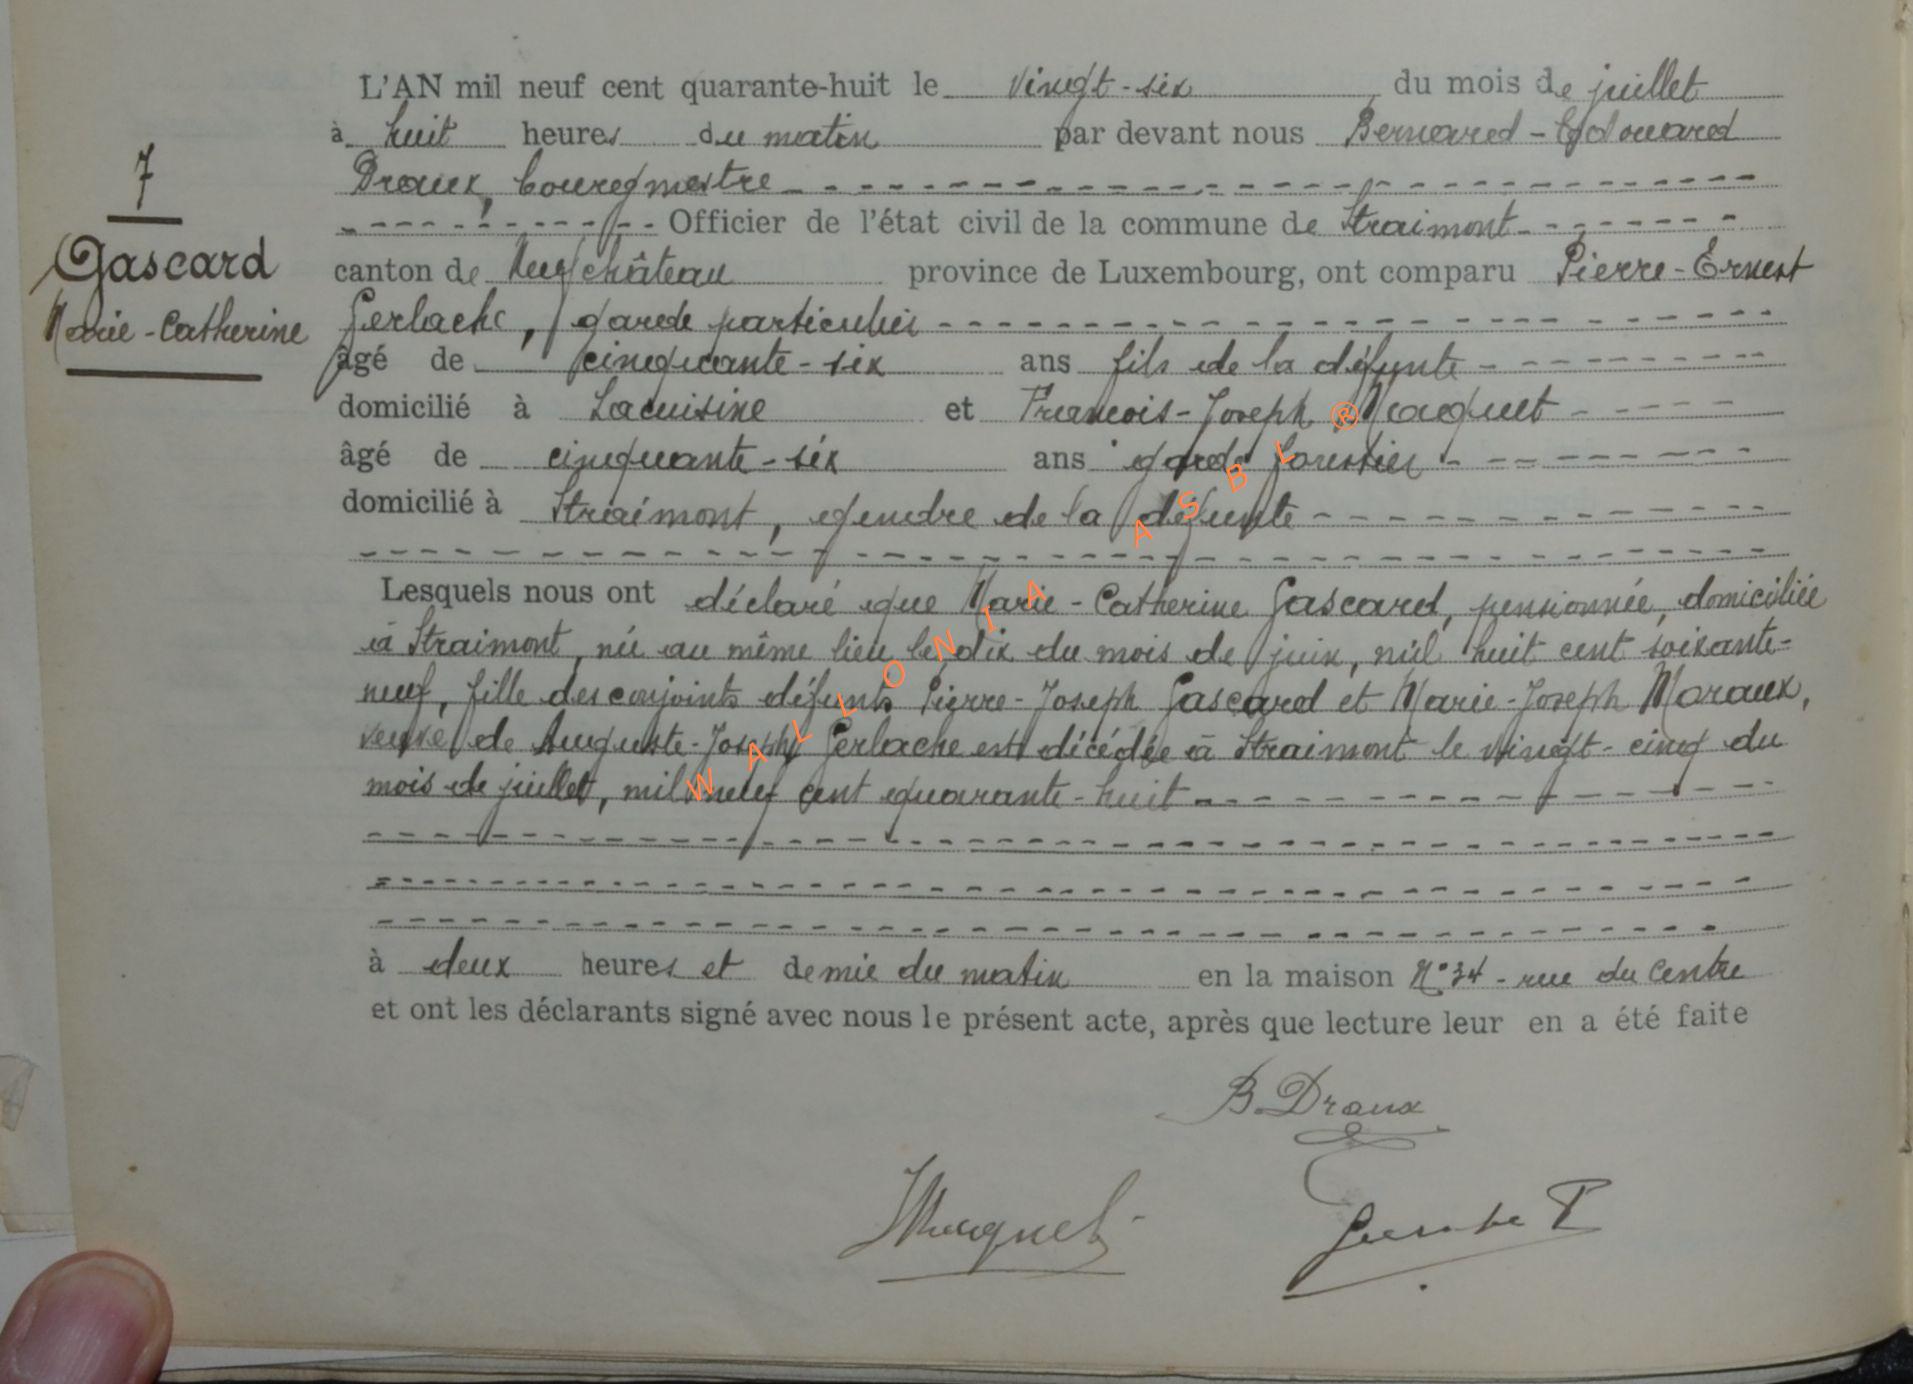 7
Gascard
Marie-Catherine
L'AN mil neuf cent quarante-huit le vingt-six du mois de juillet
à huit heures du matin par devant nous Bernard-Edouard
Draux, bourgmestre
Officier de l'état civil de la commune de Straimont
canton de Neufchâteau province de Luxembourg, ont comparu Pierre-Ernest
Gerlache, garde particulier
âgé de cinquante-six ans fils de la défunte
domicilié à Lacuisine et François-Joseph Maquet
âgé de cinquante-six ans garde forestier
domicilié à Straimont, gendre de la défunte
Lesquels nous ont déclaré que Marie-Catherine Gascard, pensionnée, domiciliée
à Straimont, née au même lieu le dix du mois de juin, mil huit cent soixante-
neuf, fille des conjoints défunts Pierre-Joseph Gascard et Marie-Joseph Maraux,
veuve de Auguste-Joseph Gerlache est décédée à Straimont le vingt-cinq du
mois de juillet, mil neuf cent quarante-huit
à deux heures et demie du matin en la maison N°34 - rue du Centre
et ont les déclarants signé avec nous le présent acte, après que lecture leur en a été faite
B. Draux
Maquet
Gerlache P
WALLONIA ASBL ®